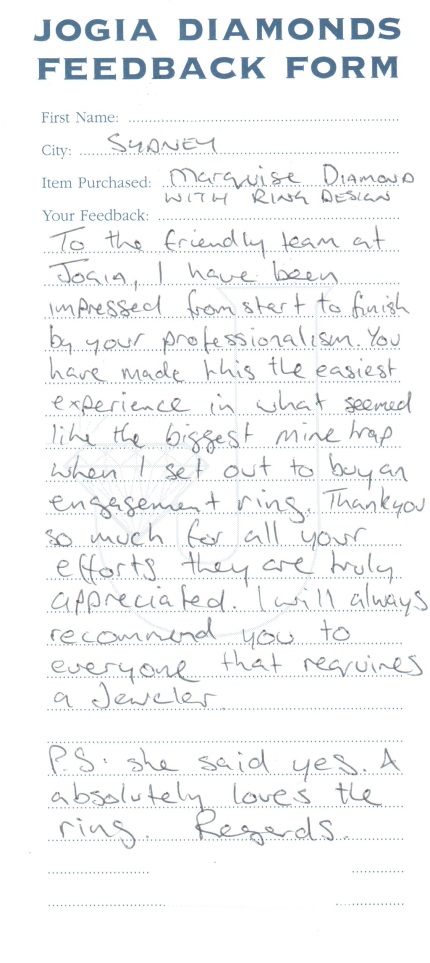 JOGIA DIAMONDS
FEEDBACK FORM
First Name:
City: SYDNEY
Item Purchased: Marquise DIAMOND
WITH RING DESIGN
Your Feedback:
To the friendly team at
Jogia, I have been
impressed from start to finish
by your professionalism. You
have made this the easiest
experience in what seemed
like the biggest mine trap
when I set out to buy an
engagement ring. Thankyou
so much for all your
efforts they are truly
appreciated. I will always
recommend you to
everyone that requires
a Jeweler.
P.S: she said yes. &
absolutely loves the
ring. Regards.